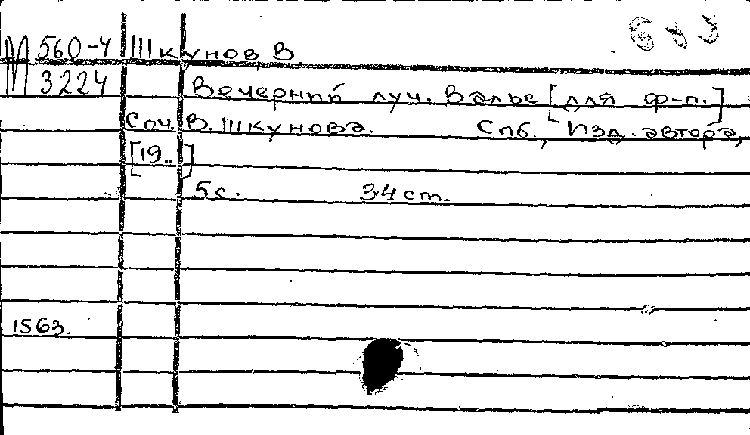 М 560-4 Шкунов В
3224
Вечерний луч. Вальс [для ф-п.]
Соч. В. Шкунова. Спб., Изд. автора,
[19..]
5 с. 34 cm.
1563.